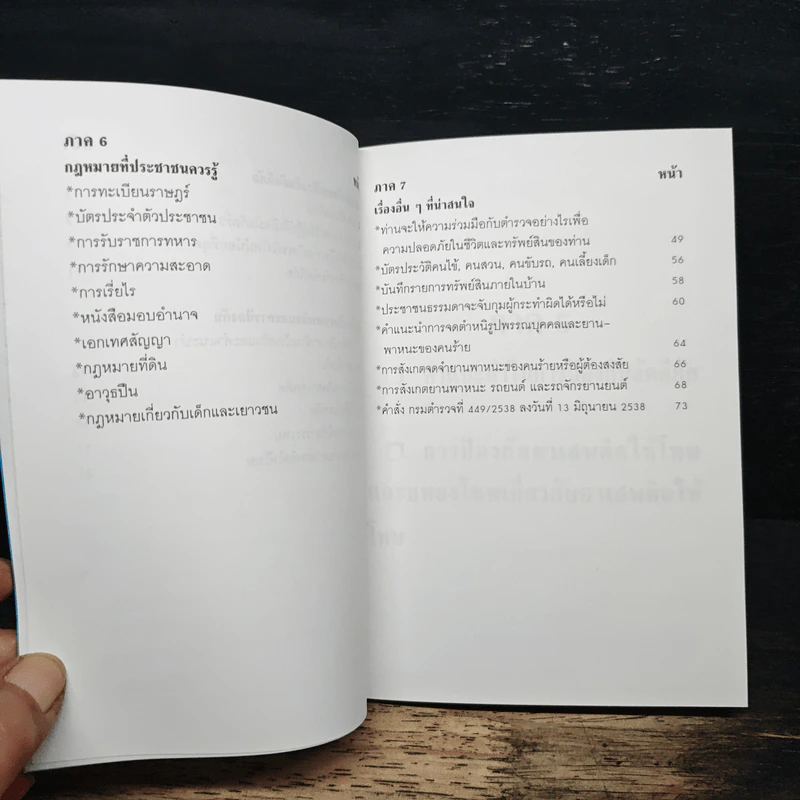 ภาค 6
กฎหมายที่ประชาชนควรรู้
*การทะเบียนราษฎร์
*บัตรประจำตัวประชาชน
*การรับราชการทหาร
*การรักษาความสะอาด
*การเรี่ยไร
*หนังสือมอบอำนาจ
*เอกเทศสัญญา
*กฎหมายที่ดิน
*อาวุธปืน
*กฎหมายเกี่ยวกับเด็กและเยาวชน
หน้า
ภาค 7
เรื่องอื่น ๆ ที่น่าสนใจ
*ท่านจะให้ความร่วมมือกับตำรวจอย่างไรเพื่อ
ความปลอดภัยในชีวิตและทรัพย์สินของท่าน 49
*บัตรประวัติคนใช้, คนสวน, คนขับรถ, คนเลี้ยงเด็ก 56
*บันทึกรายการทรัพย์สินภายในบ้าน 58
*ประชาชนธรรมดาจะจับกุมผู้กระทำผิดได้หรือไม่ 60
*คำแนะนำการจดตำหนิรูปพรรณบุคคลและยาน-
พาหนะของคนร้าย 64
*การสังเกตจดจำยานพาหนะของคนร้ายหรือผู้ต้องสงสัย 66
*การสังเกตยานพาหนะ รถยนต์ และรถจักรยานยนต์ 68
*คำสั่ง กรมตำรวจที่ 449/2538 ลงวันที่ 13 มิถุนายน 2538 73